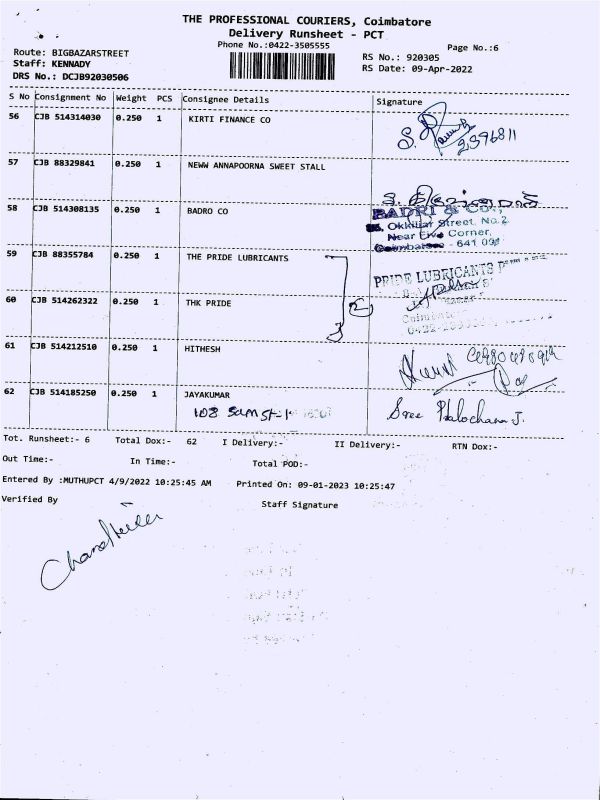 THE PROFESSIONAL COURIERS, Coimbatore
Delivery Runsheet - PCT
Phone No.:0422-3505555
Page No.:6
Route: BIGBAZARSTREET
Staff: KENNADY
RS No.: 920305
DRS No.: DCJB92030506
RS Date: 09-Apr-2022
S No Consignment No Weight PCS Consignee Details Signature
56 CJB 514314030 0.250 1 KIRTI FINANCE CO
57 CJB 88329841 0.250 1 NEWW ANNAPOORNA SWEET STALL
58 CJB 514308135 0.250 1 BADRO CO
BADRI & Co.,
Okkiliar Street, No.2
Near Five Corner,
Coimbatore - 641 001
59 CJB 88355784 0.250 1 THE PRIDE LUBRICANTS
PRIDE LUBRICANTS
60 CJB 514262322 0.250 1 THK PRIDE
Coimbatore
61 CJB 514212510 0.250 1 HITHESH
62 CJB 514185250 0.250 1 JAYAKUMAR
108
Sree
Tot. Runsheet:- 6 Total Dox:- 62 I Delivery:- II Delivery:- RTN Dox:-
Out Time:- In Time:- Total POD:-
Entered By :MUTHUPCT 4/9/2022 10:25:45 AM Printed On: 09-01-2023 10:25:47
Verified By Staff Signature